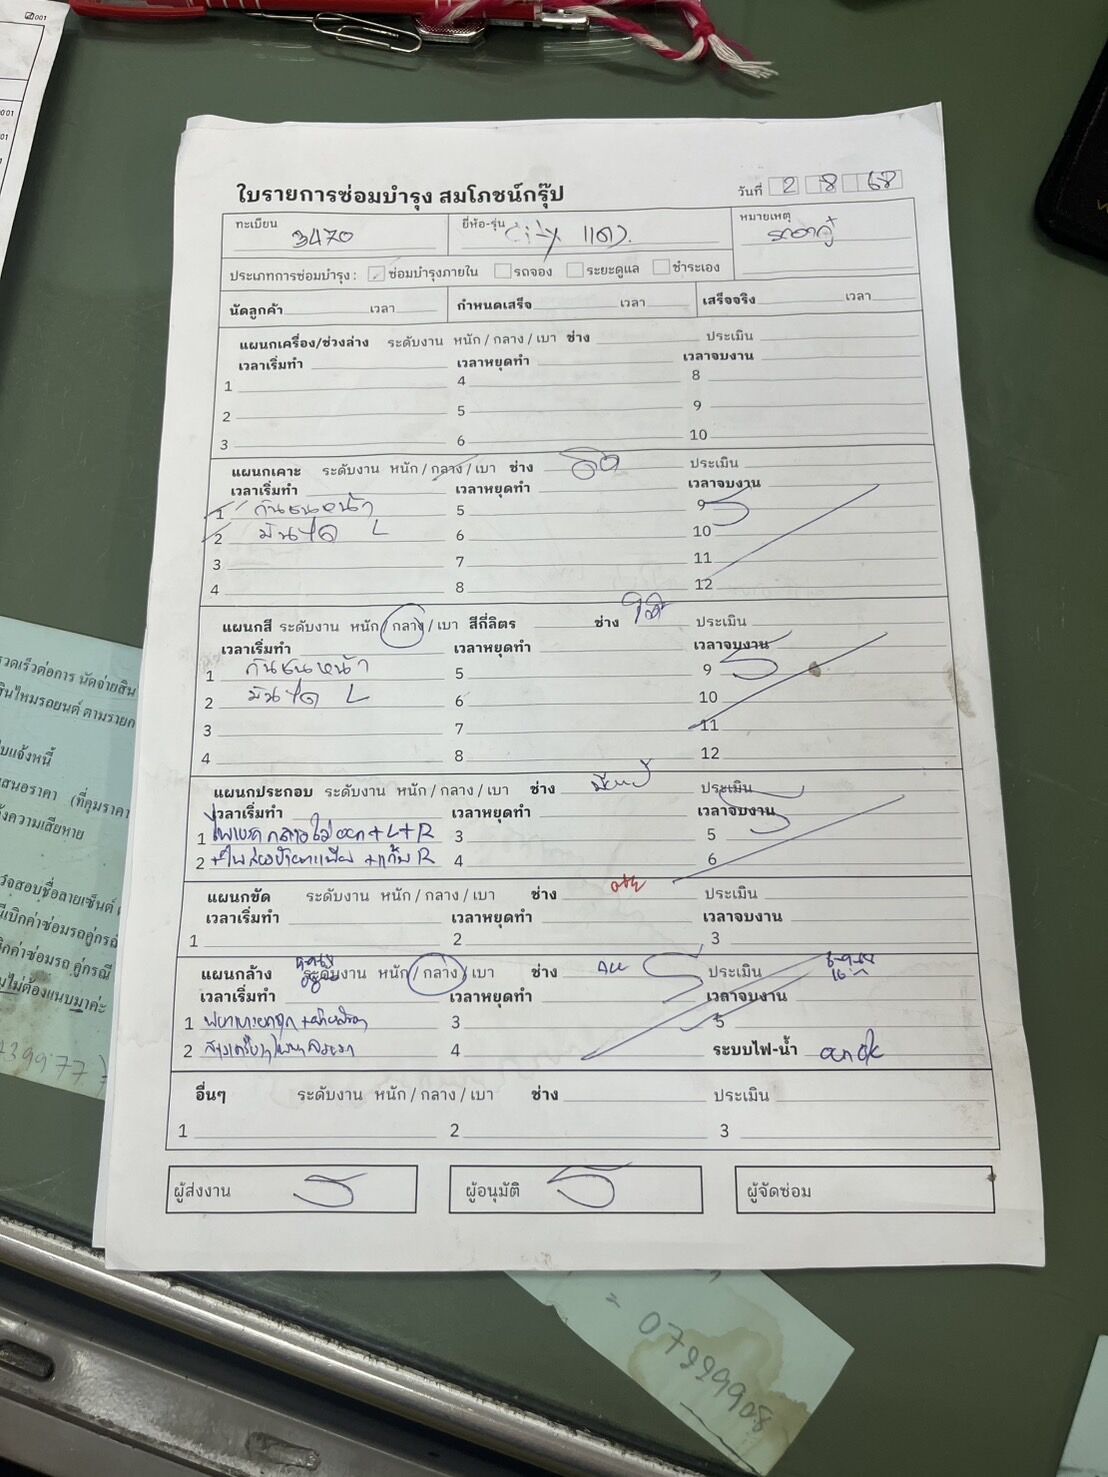 001
ใบรายการซ่อมบำรุง สมโภชน์กรุ๊ป
วันที่ 2 8 68
ทะเบียน 3470
ยี่ห้อ-รุ่น City แดง.
หมายเหตุ
ประเภทการซ่อมบำรุง : ซ่อมบำรุงภายใน รถจอง ระยะดูแล ชำระเอง
นัดลูกค้า เวลา กำหนดเสร็จ เวลา เสร็จจริง เวลา
แผนกเครื่อง/ช่วงล่าง ระดับงาน หนัก / กลาง / เบา ช่าง ประเมิน
เวลาเริ่มทำ เวลาหยุดทำ เวลาจบงาน
1 4 8
2 5 9
3 6 10
แผนกเคาะ ระดับงาน หนัก / กลาง / เบา ช่าง ประเมิน
เวลาเริ่มทำ เวลาหยุดทำ เวลาจบงาน
1 กันชนหน้า 5 9
2 บันได L 6 10
3 7 11
4 8 12
แผนกสี ระดับงาน หนัก / กลาง / เบา สีกี่ลิตร ช่าง ประเมิน
เวลาเริ่มทำ เวลาหยุดทำ เวลาจบงาน
1 กันชนหน้า 5 9
2 บันได L 6 10
3 7 11
4 8 12
แผนกประกอบ ระดับงาน หนัก / กลาง / เบา ช่าง ประเมิน
เวลาเริ่มทำ เวลาหยุดทำ เวลาจบงาน
1 ไฟเบรคกลางไม่ออก + L + R 3 5
2 + ไฟส่องป้ายทะเบียน + แก้ม R 4 6
แผนกขัด ระดับงาน หนัก / กลาง / เบา ช่าง ประเมิน
เวลาเริ่มทำ เวลาหยุดทำ เวลาจบงาน
1 2 3
แผนกล้าง ระดับงาน หนัก / กลาง / เบา ช่าง ประเมิน
เวลาเริ่มทำ เวลาหยุดทำ เวลาจบงาน
1 3 5
2 4 ระบบไฟ-น้ำ ok
อื่นๆ ระดับงาน หนัก / กลาง / เบา ช่าง ประเมิน
1 2 3
ผู้ส่งงาน ผู้อนุมัติ ผู้จัดซ่อม
รวดเร็วต่อการ นัดจ่ายสิน
สินไหมรถยนต์ ตามรายก
ใบแจ้งหนี้
เสนอราคา (ที่คุมราคา
จ้งความเสียหาย